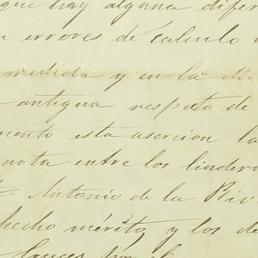 que hay alguna difer
n errores de Calculo
medida y en la di
antigua respeto de
mento esta asercion la
nota entre los lindero
Antonio de la Riv
hecho mérito y los de
por el